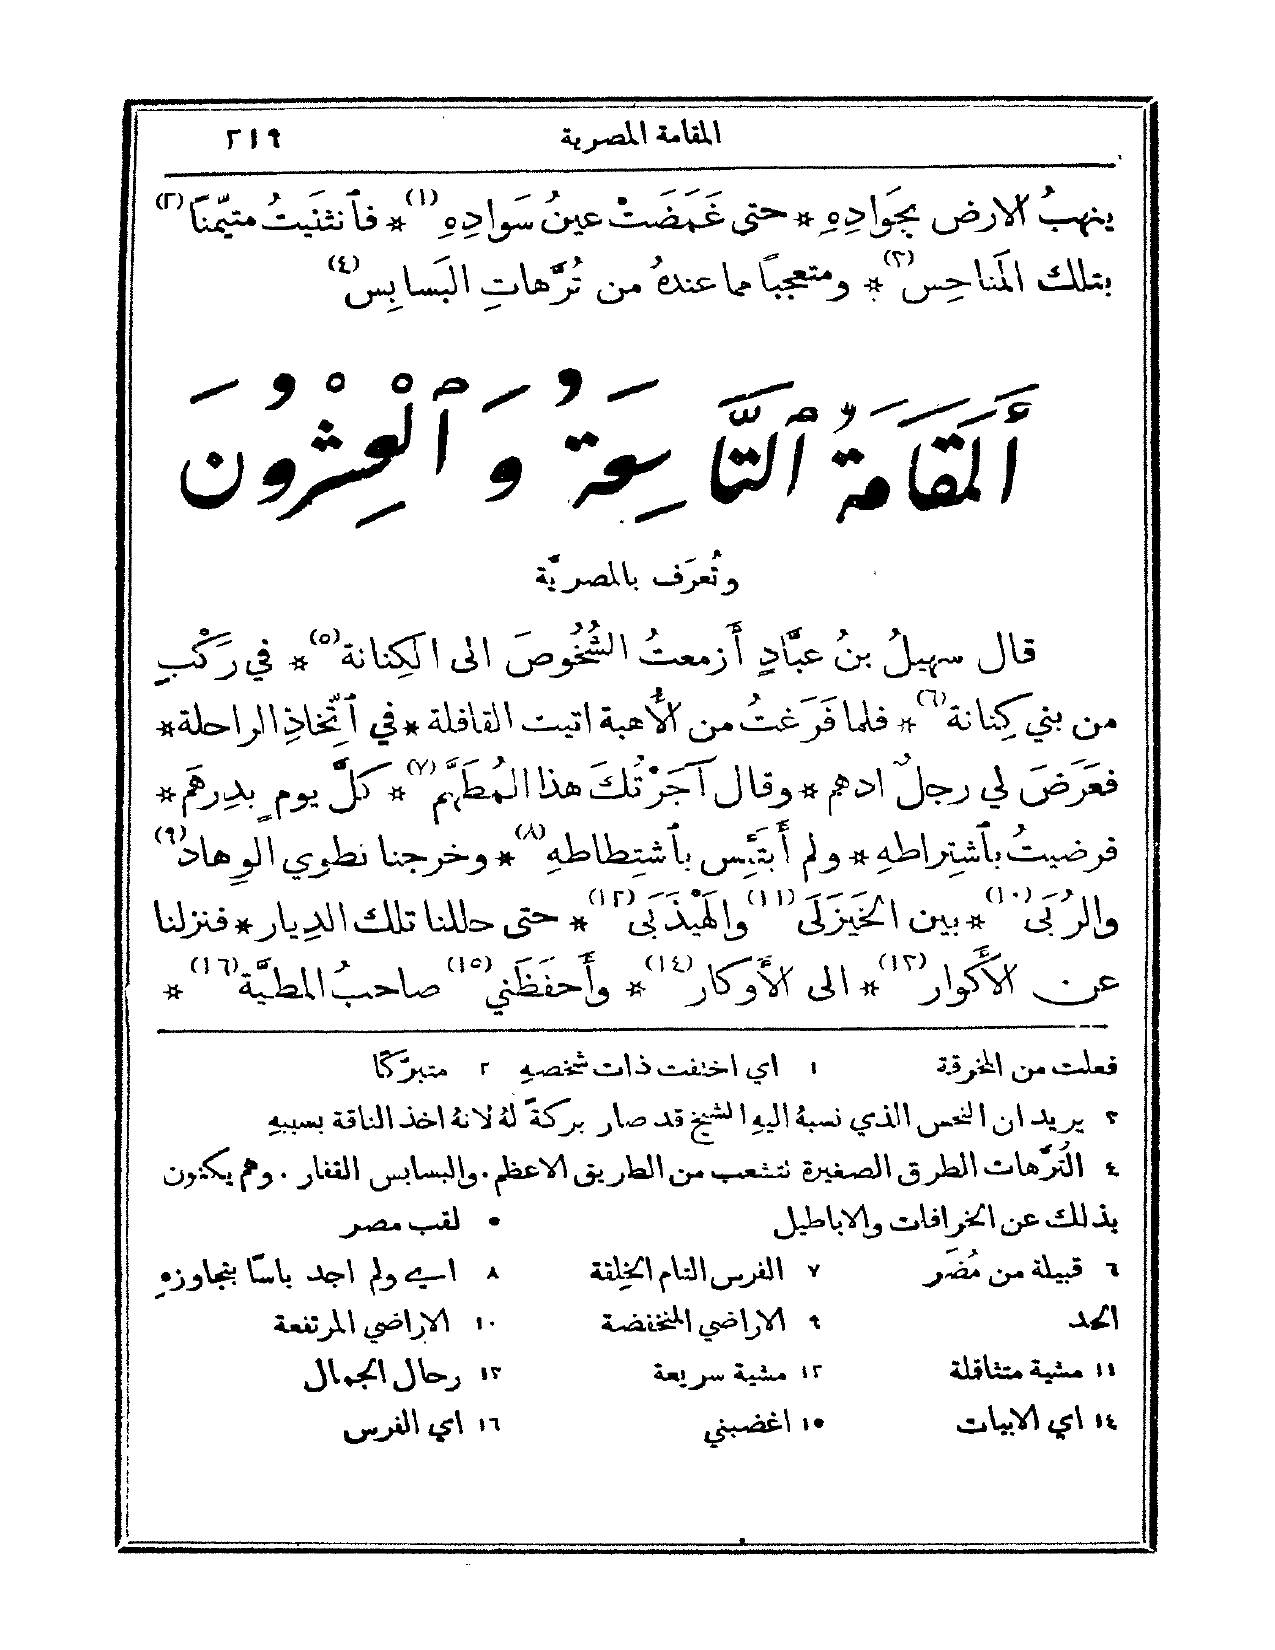 المقامة المصرية ٢١٩
ينهبُ الارض بجَوادِهِ * حتى غَمَضَتْ عينُ سَوادِهِ (١) * فٱنثنَيتُ متيمّنًا (٢)
بتلك المَناحِس (٣) * ومتعجبًا مما عندهُ من تُرَّهاتِ البَسابِس (٤)
أَلمَقَامَةُ ٱلتَّاسِعَةُ وَٱلْعِشْرُونَ
وتُعرَف بالمصريَّة
قال سهيلُ بنُ عبَّادٍ أَزمعتُ الشُّخُوصَ الى الكِنانة (٥) * في رَكْبٍ
من بني كِنانة (٦) * فلما فَرَغتُ من الأُهبة اتيت القافلة * في ٱتِّخاذِ الراحلة *
فعَرَضَ لي رجلٌ ادهم * وقال آجَرْتُكَ هذا المُطهَّم (٧) * كلَّ يومٍ بدِرهَم *
فرضيتُ بٱشتِراطهِ * ولم أَبتَئِس بٱشتِطاطهِ (٨) * وخرجنا نطوي الوِهاد (٩)
والرُبَى (١٠) * بين الخَيزَلَى (١١) والهَيْذَبَى (١٢) * حتى حللنا تلك الدِيار * فنزلنا
عن الأَكوار (١٣) * الى الأَوكار (١٤) * وأَحفَظَني (١٥) صاحبُ المطيَّة (١٦) *
فعلت من المخرقة ١ اي اختفت ذات شخصهِ ٢ متبرّكًا
٣ يريد ان النحس الذي نسبهُ اليهِ الشيخ قد صار بركةً لهُ لانهُ اخذ الناقة بسببهِ
٤ التُرَّهات الطرق الصغيرة تتشعب من الطريق الاعظم . والبسابس القفار . وهم يكنون
بذلك عن الخرافات والاباطيل ٥ لقب مصر
٦ قبيلة من مُضَر ٧ الفرس التام الخِلقة ٨ اي ولم اجد باسًا بتجاوزهِ
الحد ٩ الاراضي المنخفضة ١٠ الاراضي المرتفعة
١١ مشية متثاقلة ١٢ مشية سريعة ١٣ رحال الجمال
١٤ اي الابيات ١٥ اغضبني ١٦ اي الفرس